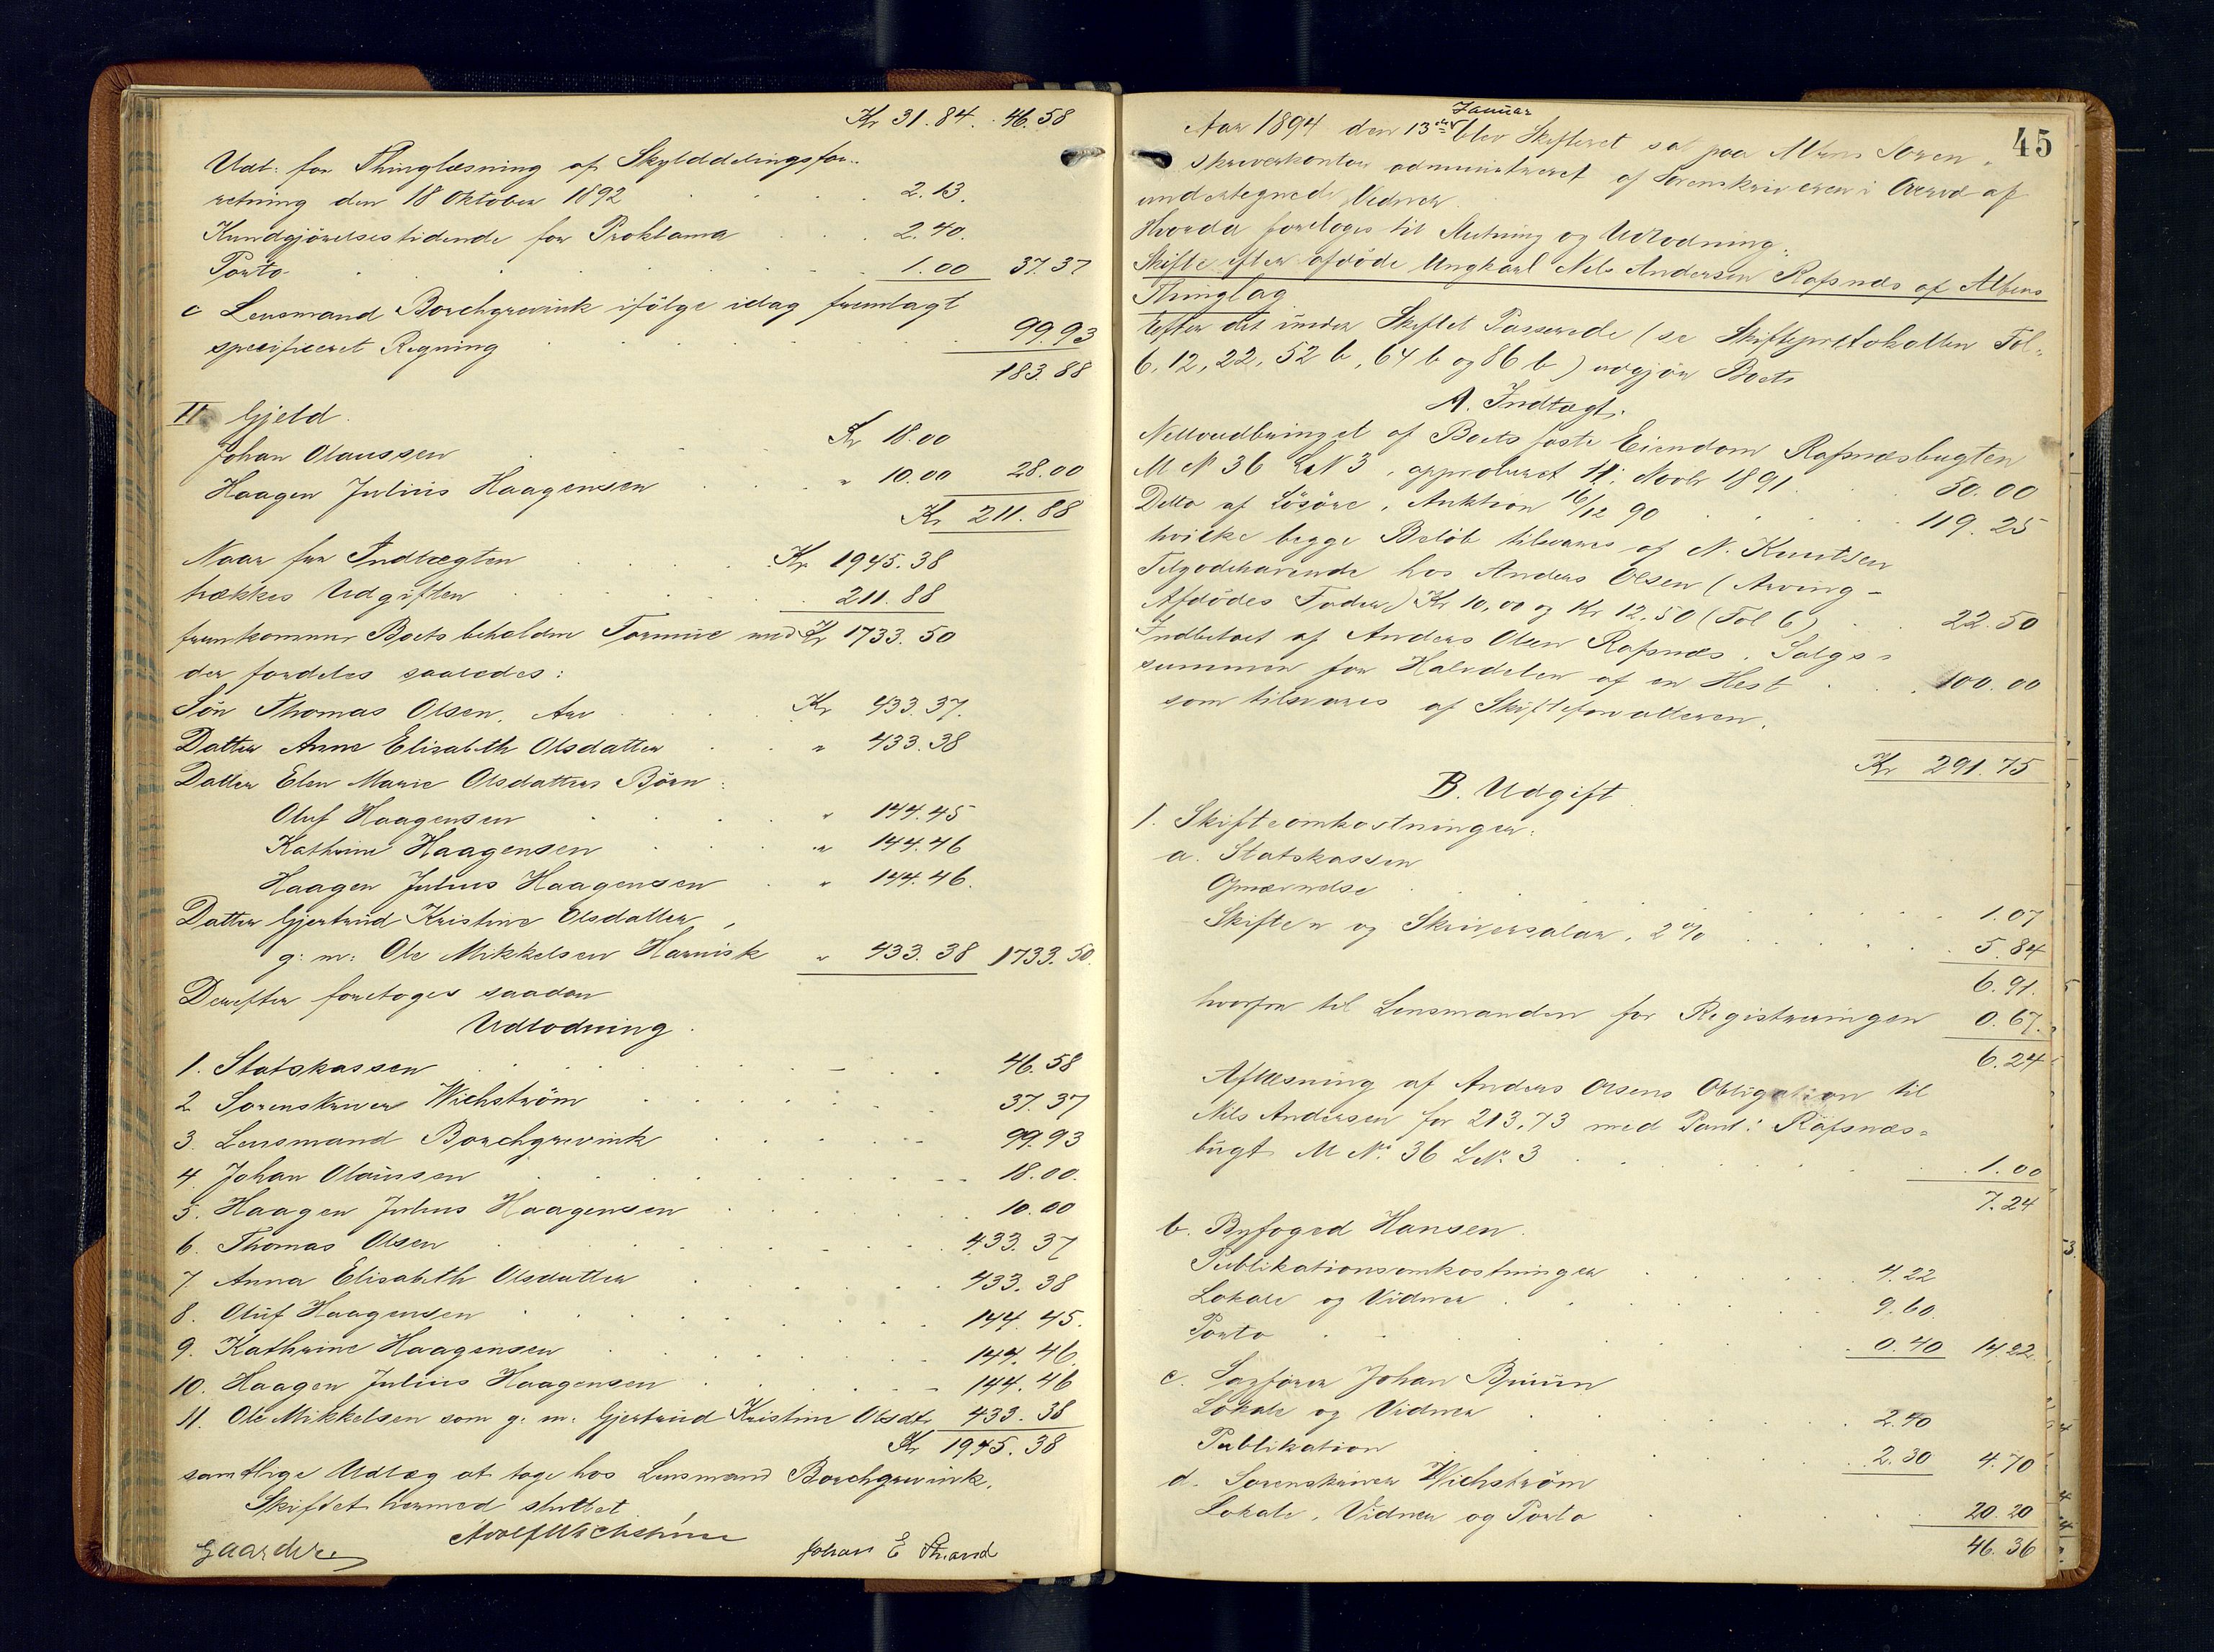 Kr 31.84. 46.58
Udl. for Thinglæsning af Skylddelingsfor-
retning den 18 Oktober 1892 2.13.
Kundgjörelsestidende for Proklama 2.40.
Porto 1.00 37.37
c Lensmand Borchgrevink ifölge idag fremlagt
specificeret Regning 99.93
183.88
II Gjeld.
Johan Olaussen Kr 18.00
Haagen Julius Haagensen " 10.00 28.00
Kr 211.88
Naar fra Indtægten Kr 1945.38
trækkes Udgiften 211.88
fremkommer Boets beholdne Formue med Kr 1733.50
der fordeles saaledes:
Sön Thomas Olsen, Arv Kr 433.37.
Datter Anne Elisabeth Olsdatter " 433.38
Datter Elen Marie Olsdatters Börn:
Oluf Haagensen " 144.45
Kathrine Haagensen " 144.46
Haagen Julius Haagensen " 144.46.
Datter Gjertrud Kristine Olsdatter,
g: m: Ole Mikkelsen Harnisk " 433.38 1733.50.
Derefter foretoges saadan
Udlodning.
1. Statskassen 46.58
2 Sorenskriver Wichström 37.37
3. Lensmand Borchgrevink 99.93
4. Johan Olaussen 18.00.
5. Haagen Julius Haagensen 10.00
6. Thomas Olsen 433.37
7 Anna Elisabeth Olsdatter 433.38
8. Oluf Haagensen 144.45.
9. Kathrine Haagensen 144.46.
10. Haagen Julius Haagensen 144.46
11. Ole Mikkelsen som g: m: Gjertrud Kristine Olsdtr 433.38
Kr 1945.38
samtlige Udlæg at tage hos Lensmand Borchgrevink.
Skiftet hermed sluttet
Adolf Wichström
Gaarder Johan E Strand
45
Januar
Aar 1894 den 13de blev Skifteret sat paa Altens Soren-
skriverkontor administreret af Sorenskriveren i Overvær af
undertegnede Vidner.
Hvorda foretoges til Slutning og Udlodning:
Skifte efter afdöde Ungkarl Nils Andersen Rafsnæs af Altens
Thinglag
Efter det under Skiftet Passerede (se Skifteprotokollen Fol.
6, 12, 22, 52 b, 64 b og 86 b) udgjör Boets
A. Indtægt.
Nettoudbringet af Boets faste Eiendom Rafsnæsbugten
M No 36 LN 3, approberet 11. Novbr 1891. 50.00
Ditto af Lösöre, Auktion 16/12 90 119.25
hvilke begge Belöb tilsvares af N. Knutsen
Tilgodehavende hos Anders Olsen (Arving -
Afdödes Fader) Kr 10,00 og Kr 12,50 (Fol 6) 22.50
Indbetalt af Anders Olsen Rafsnæs, Salgs-
summen for Halvdelen af en Hest 100.00
som tilsvares af Skifteforvalteren.
Kr 291.75
B. Udgift
1. Skifteomkostninger:
a. Statskassen
Opnævnelse 1.07
Skifte n og Skriversalær, 2% 5.84
6.91.
hvorfra til Lensmanden for Registreringen 0.67.
6.24
Aflæsning af Anders Olsens Obligation til
Nils Andersen for 213,73 med Pant i Rafsnæs-
bugt M No. 36 LN. 3 1.00
7.24
b. Byfoged Hansen.
Publikationsomkostninger 4.22
Lokale og Vidner 9.60
Porto 0.40 14.22
c. Sagförer Johan Bruun
Lokale og Vidner 2.40
Publikation 2.30 4.70
d. Sorenskriver Wichström
Lokale, Vidner og Porto 20.20
46.36